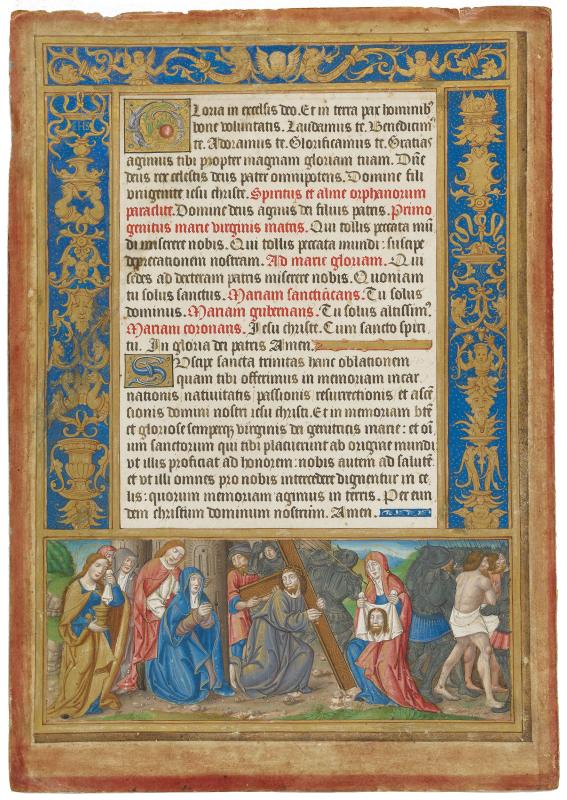 Gloria in excelsis deo. Et in terra pax hominib᷒
bone voluntatis. Laudamus te. Benedicim᷒
te. Adoramus te. Glorificamus te. Gratias
agimus tibi propter magnam gloriam tuam. Dn̄e
deus rex celestis deus pater omnipotens. Domine fili
unigenite iesu christe. Spiritus et alme orphanorum
paraclite. Domine deus agnus dei filius patris. Primo
genitus marie virginis matris. Qui tollis peccata mū
di miserere nobis. Qui tollis peccata mundi: suscipe
deprecationem nostram. Ad marie gloriam. Qui
sedes ad dexteram patris miserere nobis. Quoniam
tu solus sanctus. Mariam sanctificans. Tu solus
dominus. Mariam gubernans. Tu solus altissim᷒
Mariam coronans. Iesu christe. Cum sancto spiri
tu. In gloria dei patris Amen.
Suscipe sancta trinitas hanc oblationem
quam tibi offerimus in memoriam incar
nationis nativitatis passionis resurrectionis et ascē
sionis domini nostri iesu christi. Et in memoriam btē
et gloriose semperq̧ virginis dei genitricis marie: et oī
um sanctorum qui tibi placuerunt ab origine mundi
vt illis proficiat ad honorem: nobis autem ad salutē
et vt illi omnes pro nobis intercedere dignentur in ce
lis: quorum memoriam agimus in terris. Per eun
dem christum dominum nostrum. Amen.